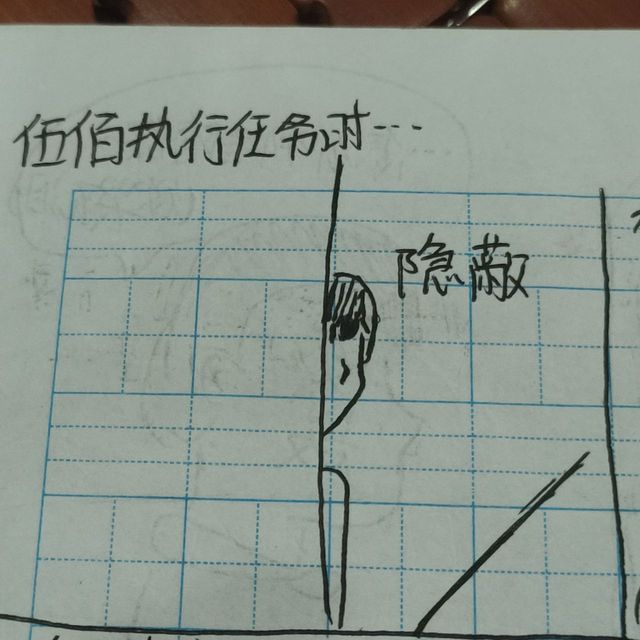 伍佰执行任务时…
隐蔽